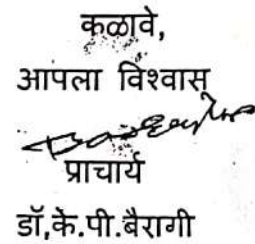 कळावे,
आपला विश्वास
प्राचार्य
डॉ,के.पी.बैरागी